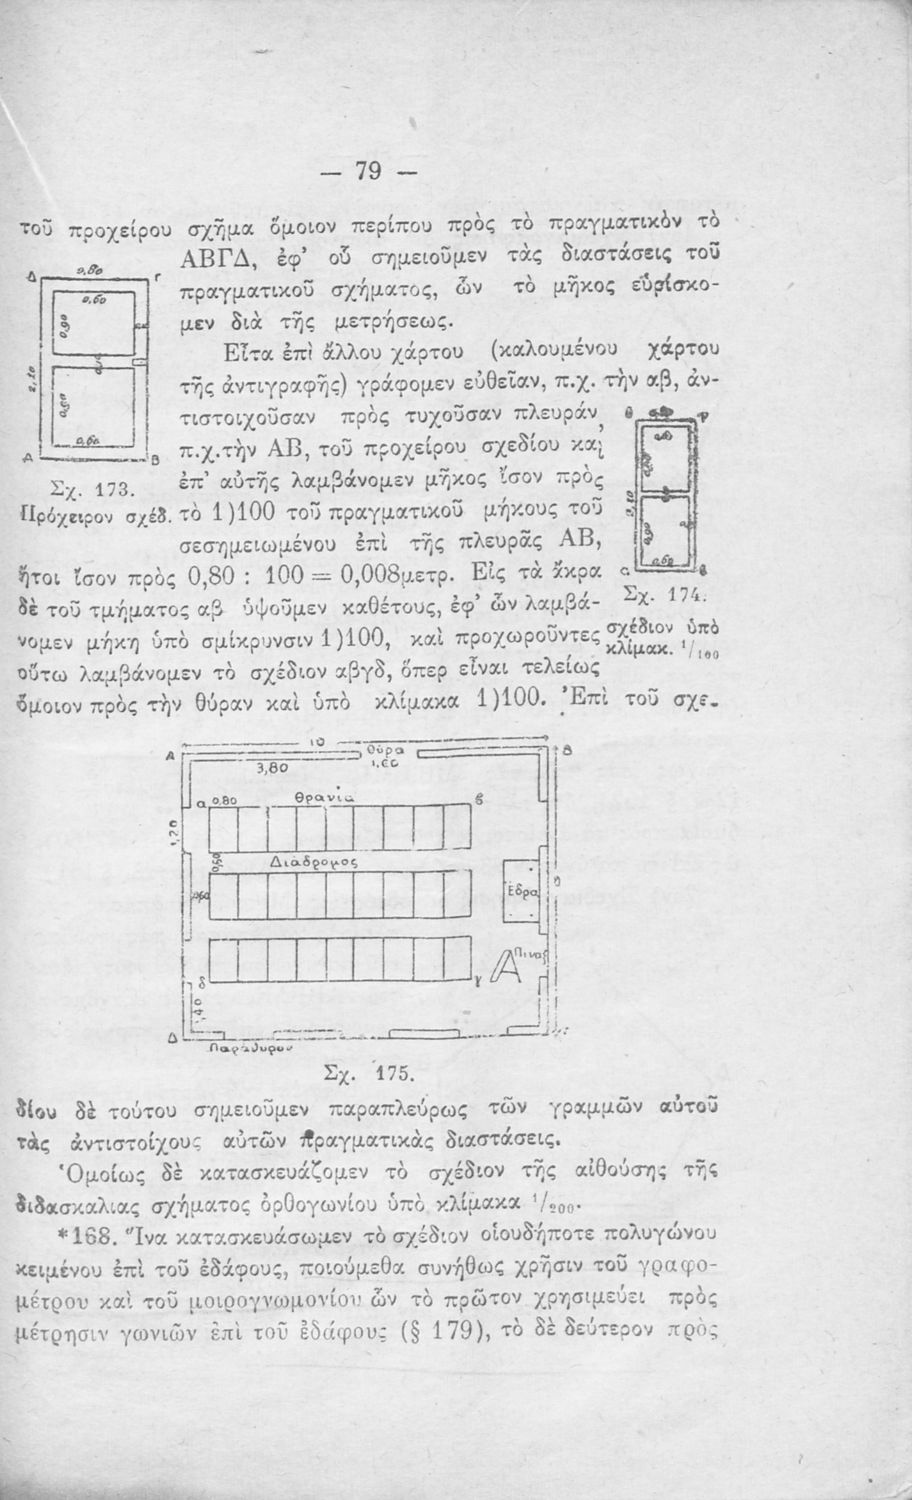 — 79 —
τοῦ προχείρου σχῆμα ὅμοιον περίπου πρὸς τὸ πραγματικὸν τὸ
ΑΒΓΔ, ἐφ’ οὗ σημειοῦμεν τὰς διαστάσεις τοῦ
πραγματικοῦ σχήματος, ὧν τὸ μῆκος εὑρίσκο-
μεν διὰ τῆς μετρήσεως.
Εἶτα ἐπὶ ἄλλου χάρτου (καλουμένου χάρτου
τῆς ἀντιγραφῆς) γράφομεν εὐθεῖαν, π.χ. τὴν αβ, ἀν-
τιστοιχοῦσαν πρὸς τυχοῦσαν πλευράν,
π.χ.τὴν ΑΒ, τοῦ προχείρου σχεδίου καὶ
ἐπ’ αὐτῆς λαμβάνομεν μῆκος ἴσον πρὸς
τὸ 1)100 τοῦ πραγματικοῦ μήκους τοῦ
σεσημειωμένου ἐπὶ τῆς πλευρᾶς ΑΒ,
ἤτοι ἴσον πρὸς 0,80 : 100 = 0,008μετρ. Εἰς τὰ ἄκρα
δὲ τοῦ τμήματος αβ ὑψοῦμεν καθέτους, ἐφ’ ὧν λαμβά-
νομεν μήκη ὑπὸ σμίκρυνσιν 1)100, καὶ προχωροῦντες
οὕτω λαμβάνομεν τὸ σχέδιον αβγδ, ὅπερ εἶναι τελείως
ὅμοιον πρὸς τὴν θύραν καὶ ὑπὸ κλίμακα 1)100. Ἐπὶ τοῦ σχε-
Δ 0,80 Γ
0,60
0,90
2,20
0,90
0,60
Α Β
Σχ. 173.
Πρόχειρον σχέδ.
Σχ. 174.
σχέδιον ὑπὸ
κλίμακ. 1/100
Α 10 Β
Θύρα
3,80 1,60
α 0,80 Θρανία β
1,20
Διάδρομος
0,60
Ἕδρα
Πιναξ
δ γ
Δ
Παράθυρον
Σχ. 175.
δίου δὲ τούτου σημειοῦμεν παραπλεύρως τῶν γραμμῶν αὐτοῦ
τὰς ἀντιστοίχους αὐτῶν πραγματικὰς διαστάσεις.
Ὁμοίως δὲ κατασκευάζομεν τὸ σχέδιον τῆς αἰθούσης τῆς
διδασκαλιας σχήματος ὀρθογωνίου ὑπὸ κλίμακα 1/200.
*168. Ἵνα κατασκευάσωμεν τὸ σχέδιον οἱουδήποτε πολυγώνου
κειμένου ἐπὶ τοῦ ἐδάφους, ποιούμεθα συνήθως χρῆσιν τοῦ γραφο-
μέτρου καὶ τοῦ μοιρογνωμονίου ὧν τὸ πρῶτον χρησιμεύει πρὸς
μέτρησιν γωνιῶν ἐπὶ τοῦ ἐδάφους (§ 179), τὸ δὲ δεύτερον πρὸς